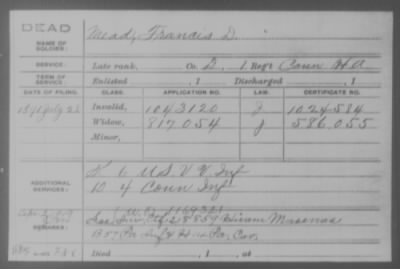 DEAD
NAME OF SOLDIER: Mead, Francis D.
SERVICE: Late rank, Co. 2, 1 Reg't Conn H A
TERM OF SERVICE: Enlisted , 1 Discharged , 1
DATE OF FILING. CLASS. APPLICATION NO. LAW. CERTIFICATE NO.
1891 July 22 Invalid, 1043120 J 1024584
Widow, 817054 J 586055
Minor,
ADDITIONAL SERVICES: K 6 U.S. V V Inf
D 4 Conn Inf
REMARKS: Hiram
B 57 Pa Inf & H Pa Cav,
Died , 1 , at